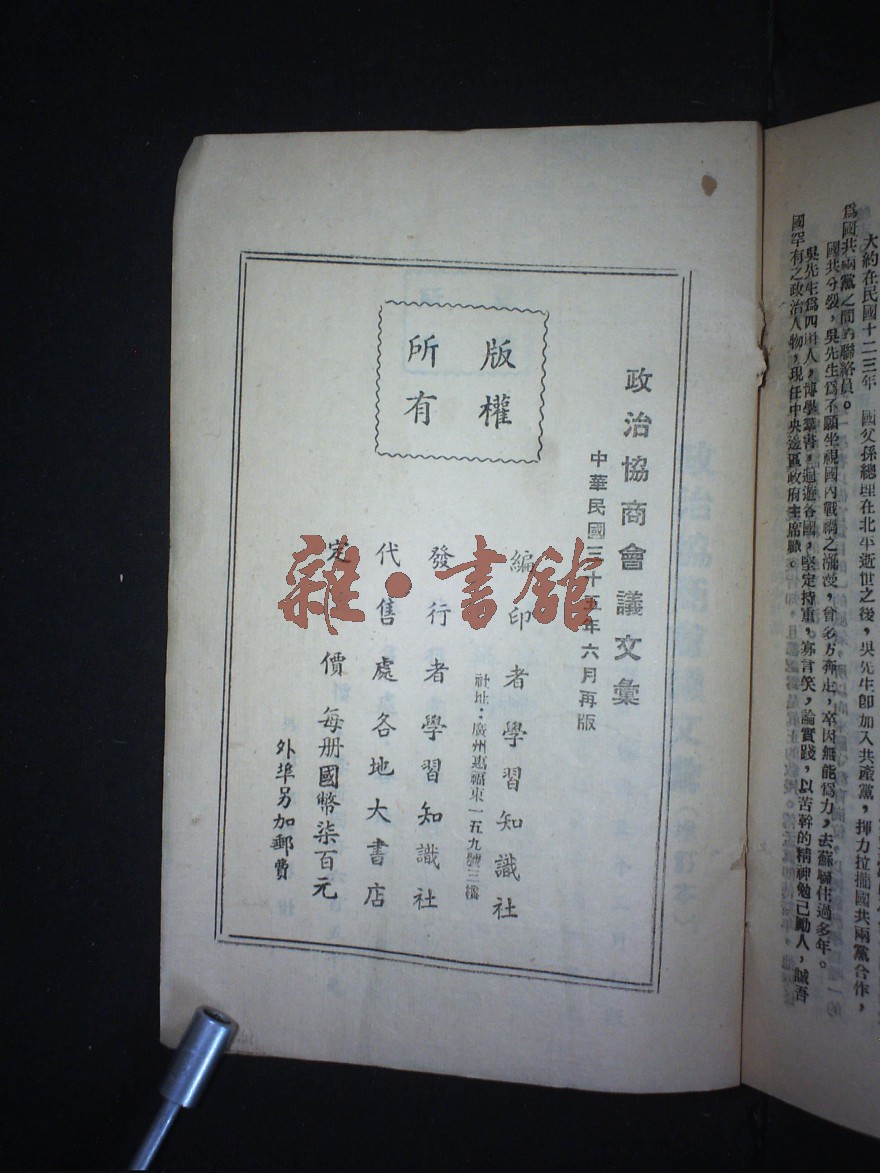 大約在民國十二三年 國父孫總理在北平逝世之後，吳先生卽加入共產黨，揮力拉攏國共兩黨合作，
爲國共兩黨之間的聯絡員。
國共分裂，吳先生爲不願坐視國內戰禍之瀰漫，曾多方奔走，卒因無能爲力，去蘇聯住過多年。
吳先生爲四川人，博學羣書，週遊各國，堅定持重，寡言笑，論實踐，以苦幹的精神勉己勵人，誠吾
國罕有之政治人物，現任中央邊區政府主席職。
政治協商會議文彙
中華民國三十五年六月再版
版權
所有
編印者學習知識社
社址：廣州惠福東一五九號三樓
發行者學習知識社
代售處各地大書店
定價 每册國幣柒百元
外埠另加郵費
雜·書館